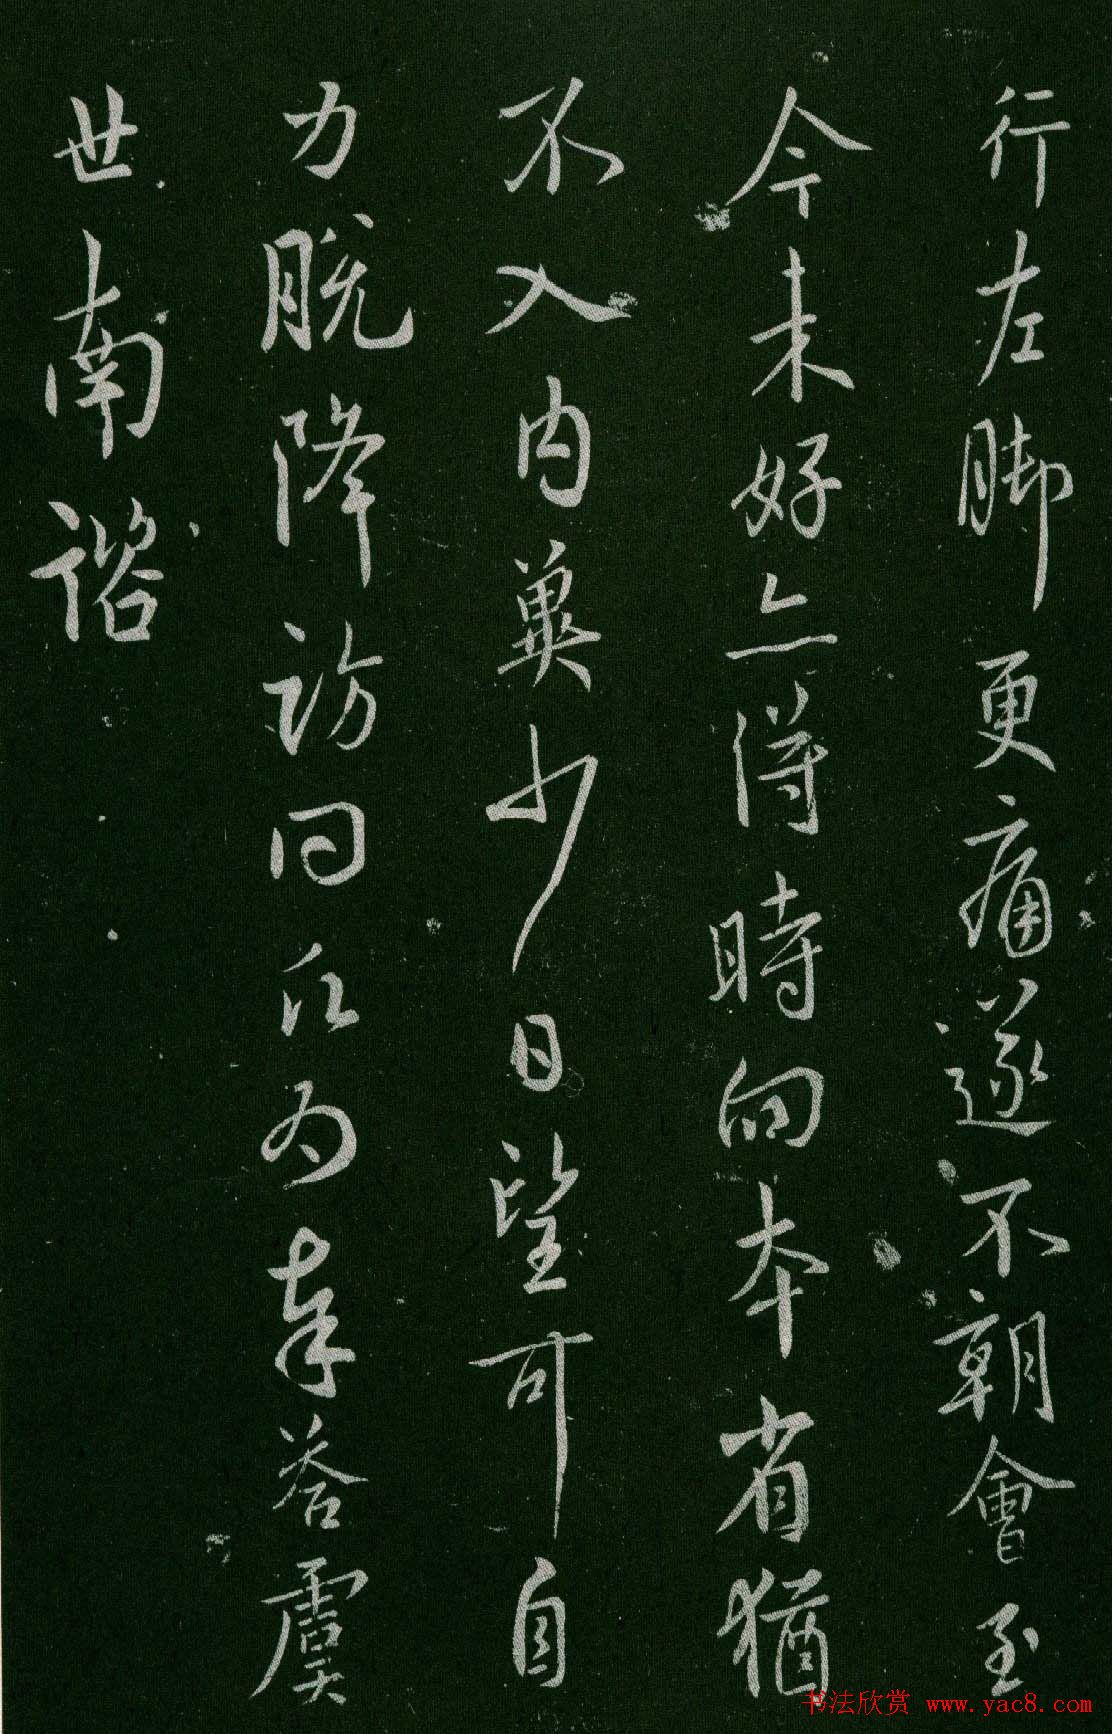 行左脚更痛遂不朝會至
今未好亦得時向本省猶
不入内冀少日望可自
力脱降访问仁为奉荅虞
世南諮
书法欣赏 www.yac8.com